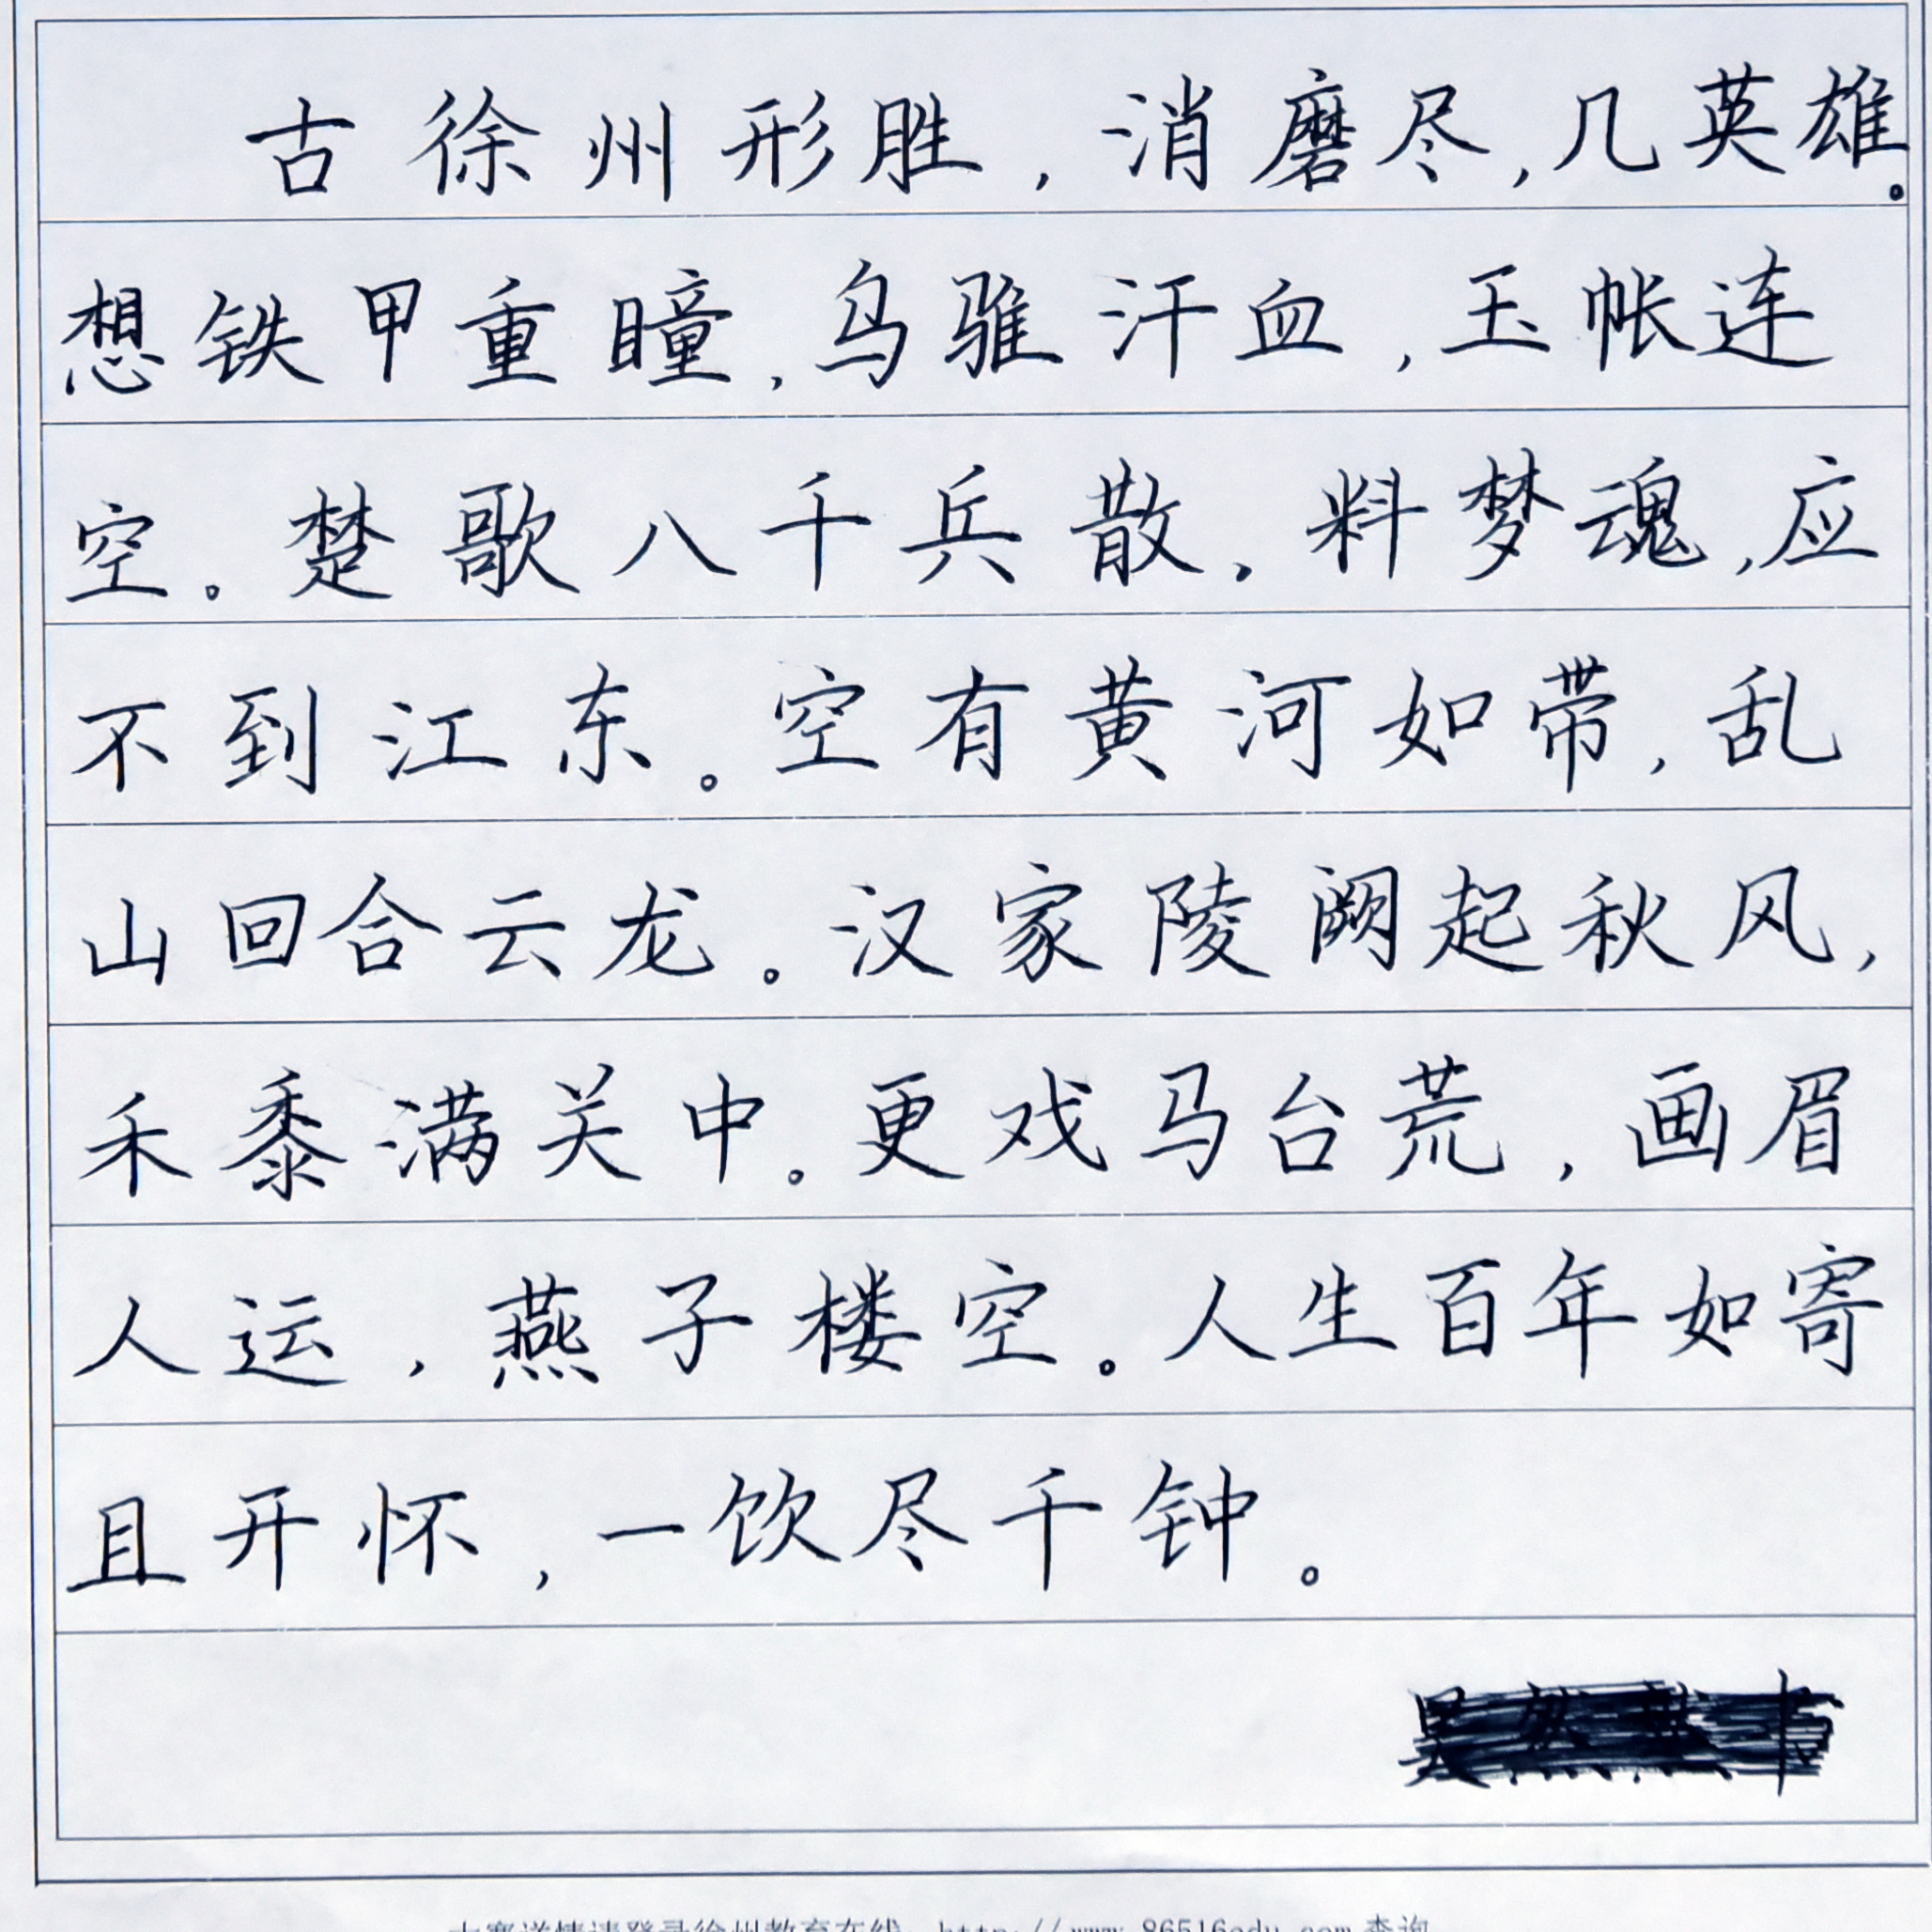 古徐州形胜，消磨尽，几英雄。
想铁甲重瞳，乌骓汗血，玉帐连
空。楚歌八千兵散，料梦魂，应
不到江东。空有黄河如带，乱
山回合云龙。汉家陵阙起秋风，
禾黍满关中。更戏马台荒，画眉
人运，燕子楼空。人生百年如寄
且开怀，一饮尽千钟。